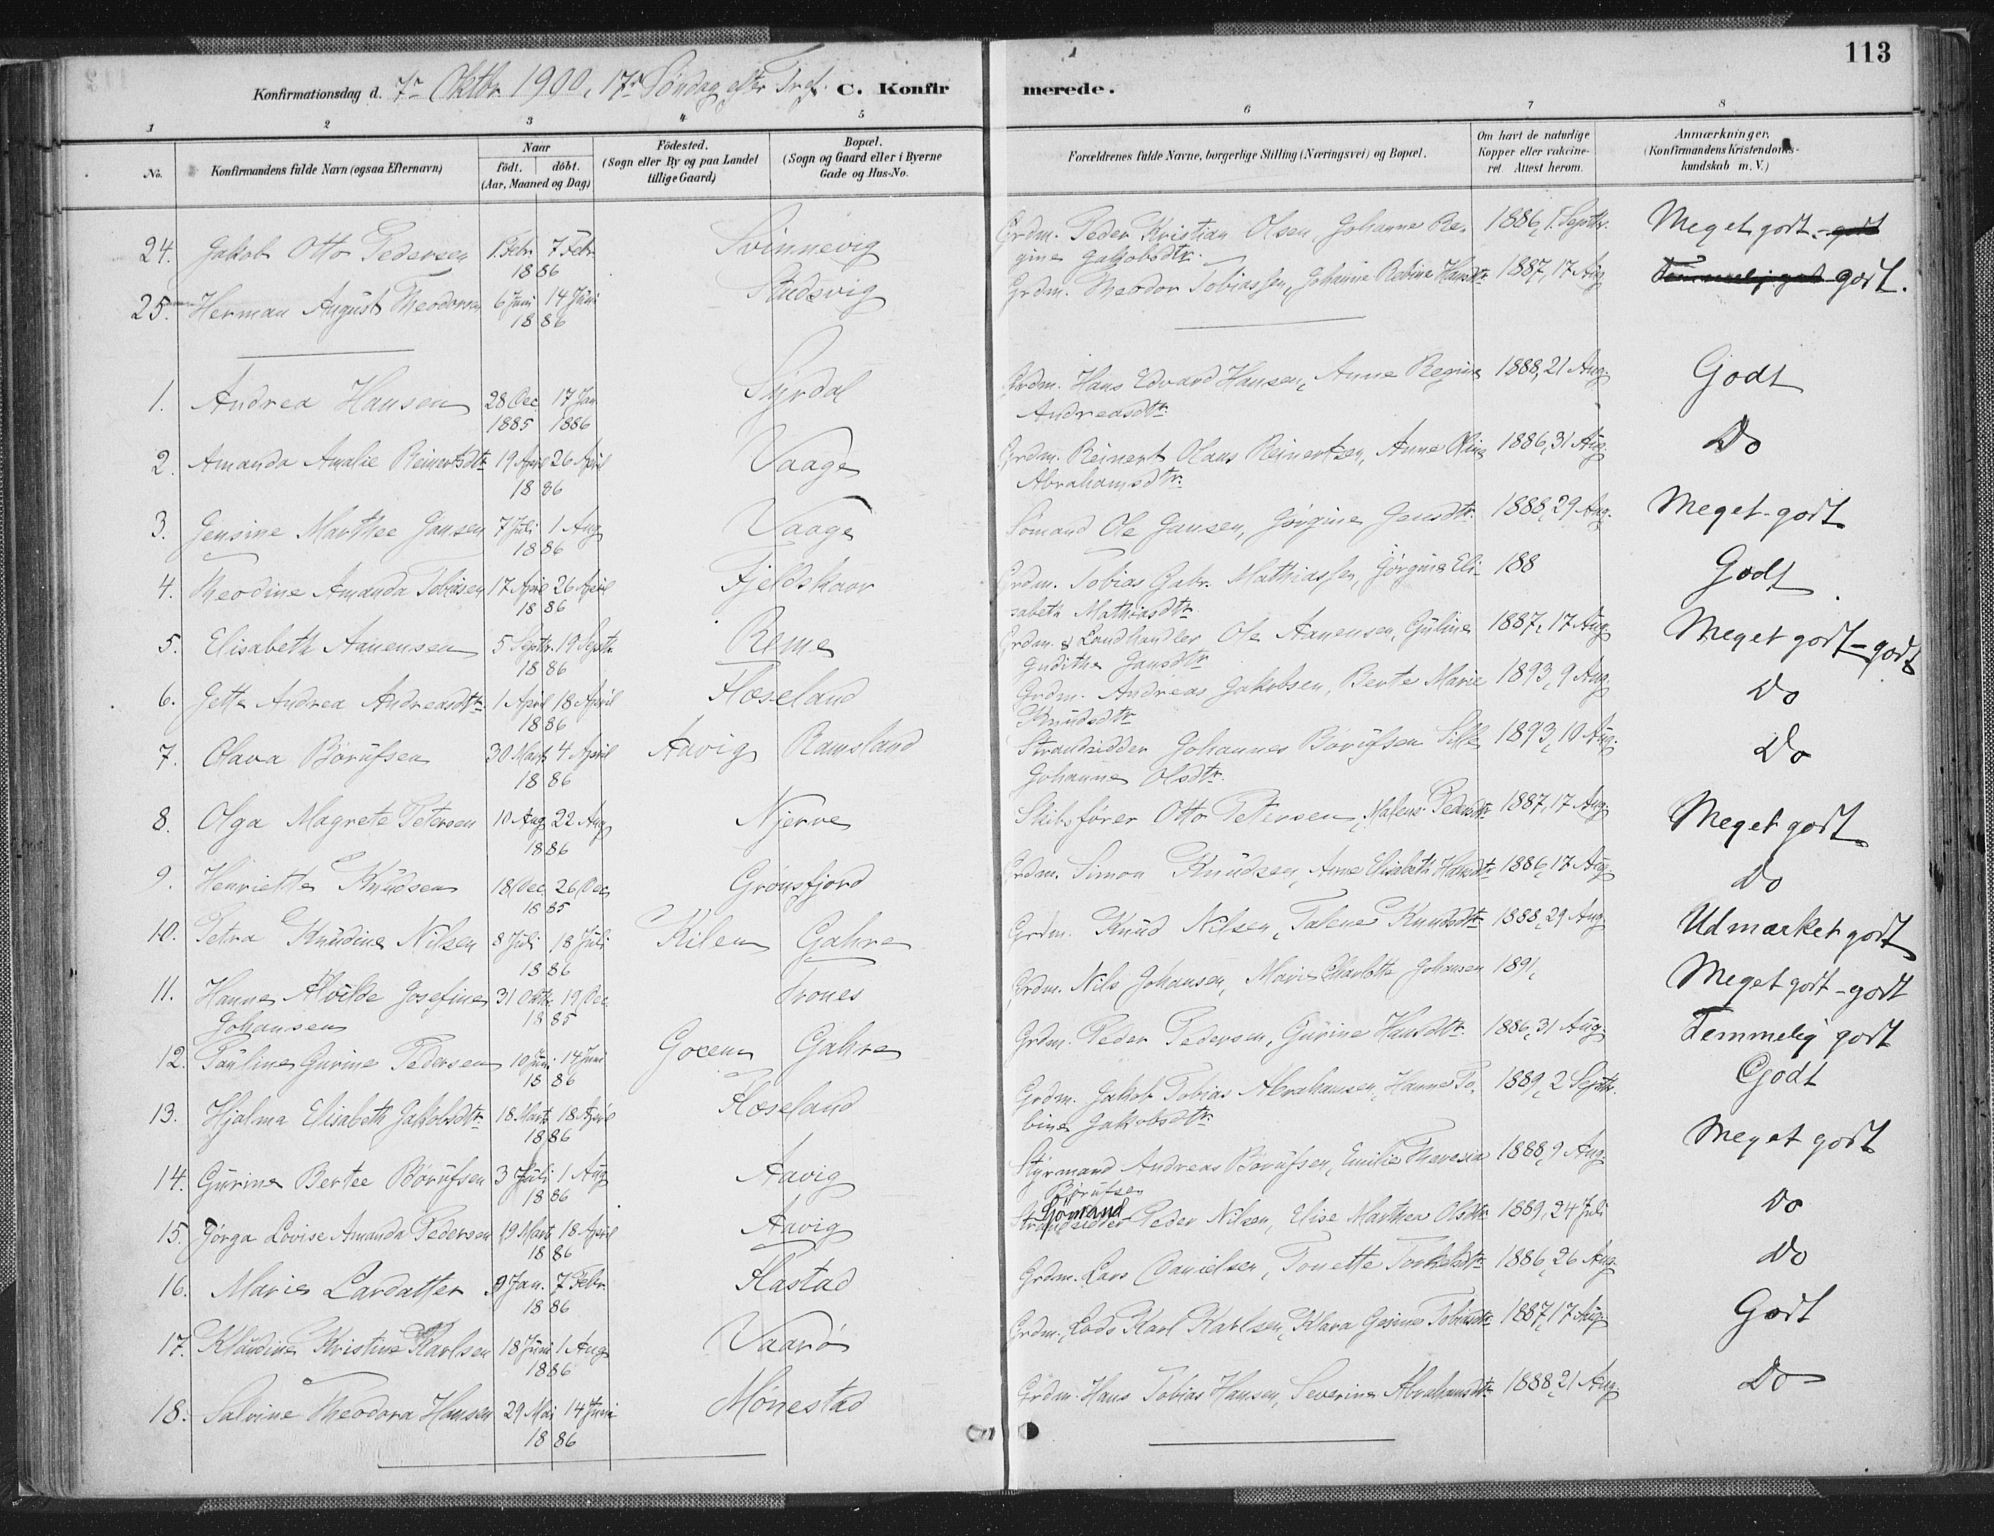 113
Konfirmationsdag d. 7de Oktbr. 1900, 17de Søndag efter Tref. C. Konfirmerede.
1 2 3 4 5 6 7 8
No. Konfirmandens fulde Navn (ogsaa Efternavn) Naar født. døbt. (Aar, Maaned og Dag) Fødested. (Sogn eller By og paa Landet tillige Gaard) Bopæl. (Sogn og Gaard eller i Byerne Gade og Hus-No. Forældrenes fulde Navne, borgerlige Stilling (Næringsvei) og Bopæl. Om havt de naturlige Kopper eller vakcineret. Attest herom. Anmærkninger, (Konfirmandens Kristendomskundskab m. V.)
24. Jakob Otto Pedersen 1 Febr. 7 Febr. 1886 Svinnevig Grdm. Peder Kristian Olsen, Johanne Regine Jakobsdtr. 1886, 1 Septbr. Meget godt - godt
25. Herman August Theodorsen 6 Juni 14 Juni 1886 Studsvig Grdm. Theodor Tobiassen, Johanne Rabine Hansdtr. 1887, 17 Aug. Temmelig godt godt.
1. Andrea Hansen 28 Dec. 1885 17 Jan 1886 Syrdal Grdm. Hans Edvard Hansen, Anne Regine Andreasdtr. 1888, 21 Aug. Godt
2. Amanda Amalie Reinertsdtr. 19 April 26 April 1886 Vaage Grdm. Reinert Olaus Reinertsen, Anne Oline Abrahamsdtr. 1886, 31 Aug. Do
3. Jensine Marthee Jansen 7 Juli 1 Aug 1886 Vaage Sømand Ole Jansen, Jørgine Jensdtr. 1888, 29 Aug. Meget godt
4. Theodine Amanda Tobiasen 17 April 26 April 1886 Fjeldskaar Grdm. Tobias Gabr. Mathiassen, Jørgine Elisabeth Mathiasdtr. 188 Godt
5. Elisabeth Aanensen 5 Septbr. 19 Septbr. 1886 Reme Grdm. & Landhandler Ole Aanensen, Guline Judithe Jansdtr. 1887, 17 Aug. Meget godt - godt
6. Jette Andrea Andreasdtr. 1 April 18 April 1886 Høseland Grdm. Andreas Jakobsen, Berte Marie Knudsdtr. 1893, 9 Aug. Do
7. Olava Børufsen 30 Mart. 4 April 1886 Aavig Ramsland Strandsidder Johannes Børufsen, Silke Johanne Olsdtr. 1893, 10 Aug. Do
8. Olga Magrete Petersen 10 Aug. 22 Aug 1886 Njerve Skibsfører Otto Petersen, Malene Pedersdtr. 1887, 17 Aug. Meget godt
9. Henriette Knudsen 18 Dec. 26 Dec. 1885 Grønsfjord Grdm. Simon Knudsen, Anne Elisabeth Hansdtr. 1886, 17 Aug. Do
10. Petra Knudine Nilsen 8 Juli 18 Juli 1886 Kilen Gahre Grdm. Knud Nilsen, Talene Knudsdtr. 1888, 29 Aug. Udmærket godt
11. Hanne Alvilde Josefine Johansen 31 Oktbr. 19 Dec 1885 Trones Grdm. Nils Johansen, Marie Charlotte Johansen 1891, Meget godt - godt
12. Pauline Gurine Pedersen 10 Juni 14 Juni 1886 Goxem Gahre Grdm. Peder Pedersen, Gurine Hansdtr. 1886, 31 Aug. Temmelig godt
13. Hjalma Elisabeth Jakobsdtr. 18 Marts 18 April 1886 Høseland Grdm. Jakob Tobias Abrahamsen, Hanne Tobine Jakobsdtr. 1889, 2 Septbr. Godt
14. Gurine Bertee Børufsen 3 Juli 1 Aug 1886 Aavig Styrmand Andreas Børufsen, Emilie Theresia Børufsen 1888, 9 Aug. Meget godt
15. Jørga Lovise Amanda Pedersen 19 Mart. 18 April 1886 Aavig Strandsidder Sømand Peder Nilsen, Elise Marthea Olsdtr. 1889, 24 Juli Do
16. Marie Larsdatter 9 Jan. 7 Febr. 1886 Hastad Grdm. Lars Danielsen, Tonette Torkelsdtr. 1886, 26 Aug. Do
17. Klaudine Kristine Karlsen 18 Juni 1 Aug 1886 Vaarø Grdm., Lods Karl Karlsen, Klara Gesine Tobiasdtr. 1887, 17 Aug. Godt
18. Salvine Theodora Hansen 29 Mai 14 Juni 1886 Mønestad Grdm. Hans Tobias Hansen, Severine Abrahamsdtr. 1888, 21 Aug. Do